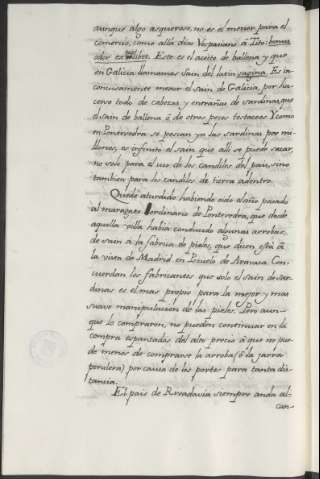 aunque algo asqueroso, no es el menor para el
comercio, como allá dixo Vespasiano à Tito: bonus
odor ex qualibet. Este es el aceite de ballena y que
en Galicia llamamos Sain del latin sagina. Es in
comparablemente mexor el sain de Galicia, por ha
cerse todo de cabezas, y entrañas de sardinas, que
el sain de ballena ò de otros peces testaceos. Y como
en Pontevedra se pescan ya las sardinas por mi
llones, es infinito el sain que alli se puede sacar,
no solo para el uso de los candiles del pais, sino
tambien para los candiles de tierra adentro.
Quedè aturdido habiendo oido el año pasado
al maragato ordinario de Pontevedra, que desde
aquella villa habia conducido algunas arrobas
de sain à la fabrica de pieles, que dicen està à
la vista de Madrid en Pozuelo de Aravaca. Con
cuerdan los fabricantes que solo el sain de sar
dinas es el mas propio para la mejor y mas
suave manipulacion de las pieles. Pero aun
que lo compraron, no pueden continuar en la
compra espantados del alto precio à que no pue
de menos de comprarse la arroba (ò la jarra
perulera) por causa de los portes para tanta dis
tancia.
El pais de Rivadavia siempre anda al
can-